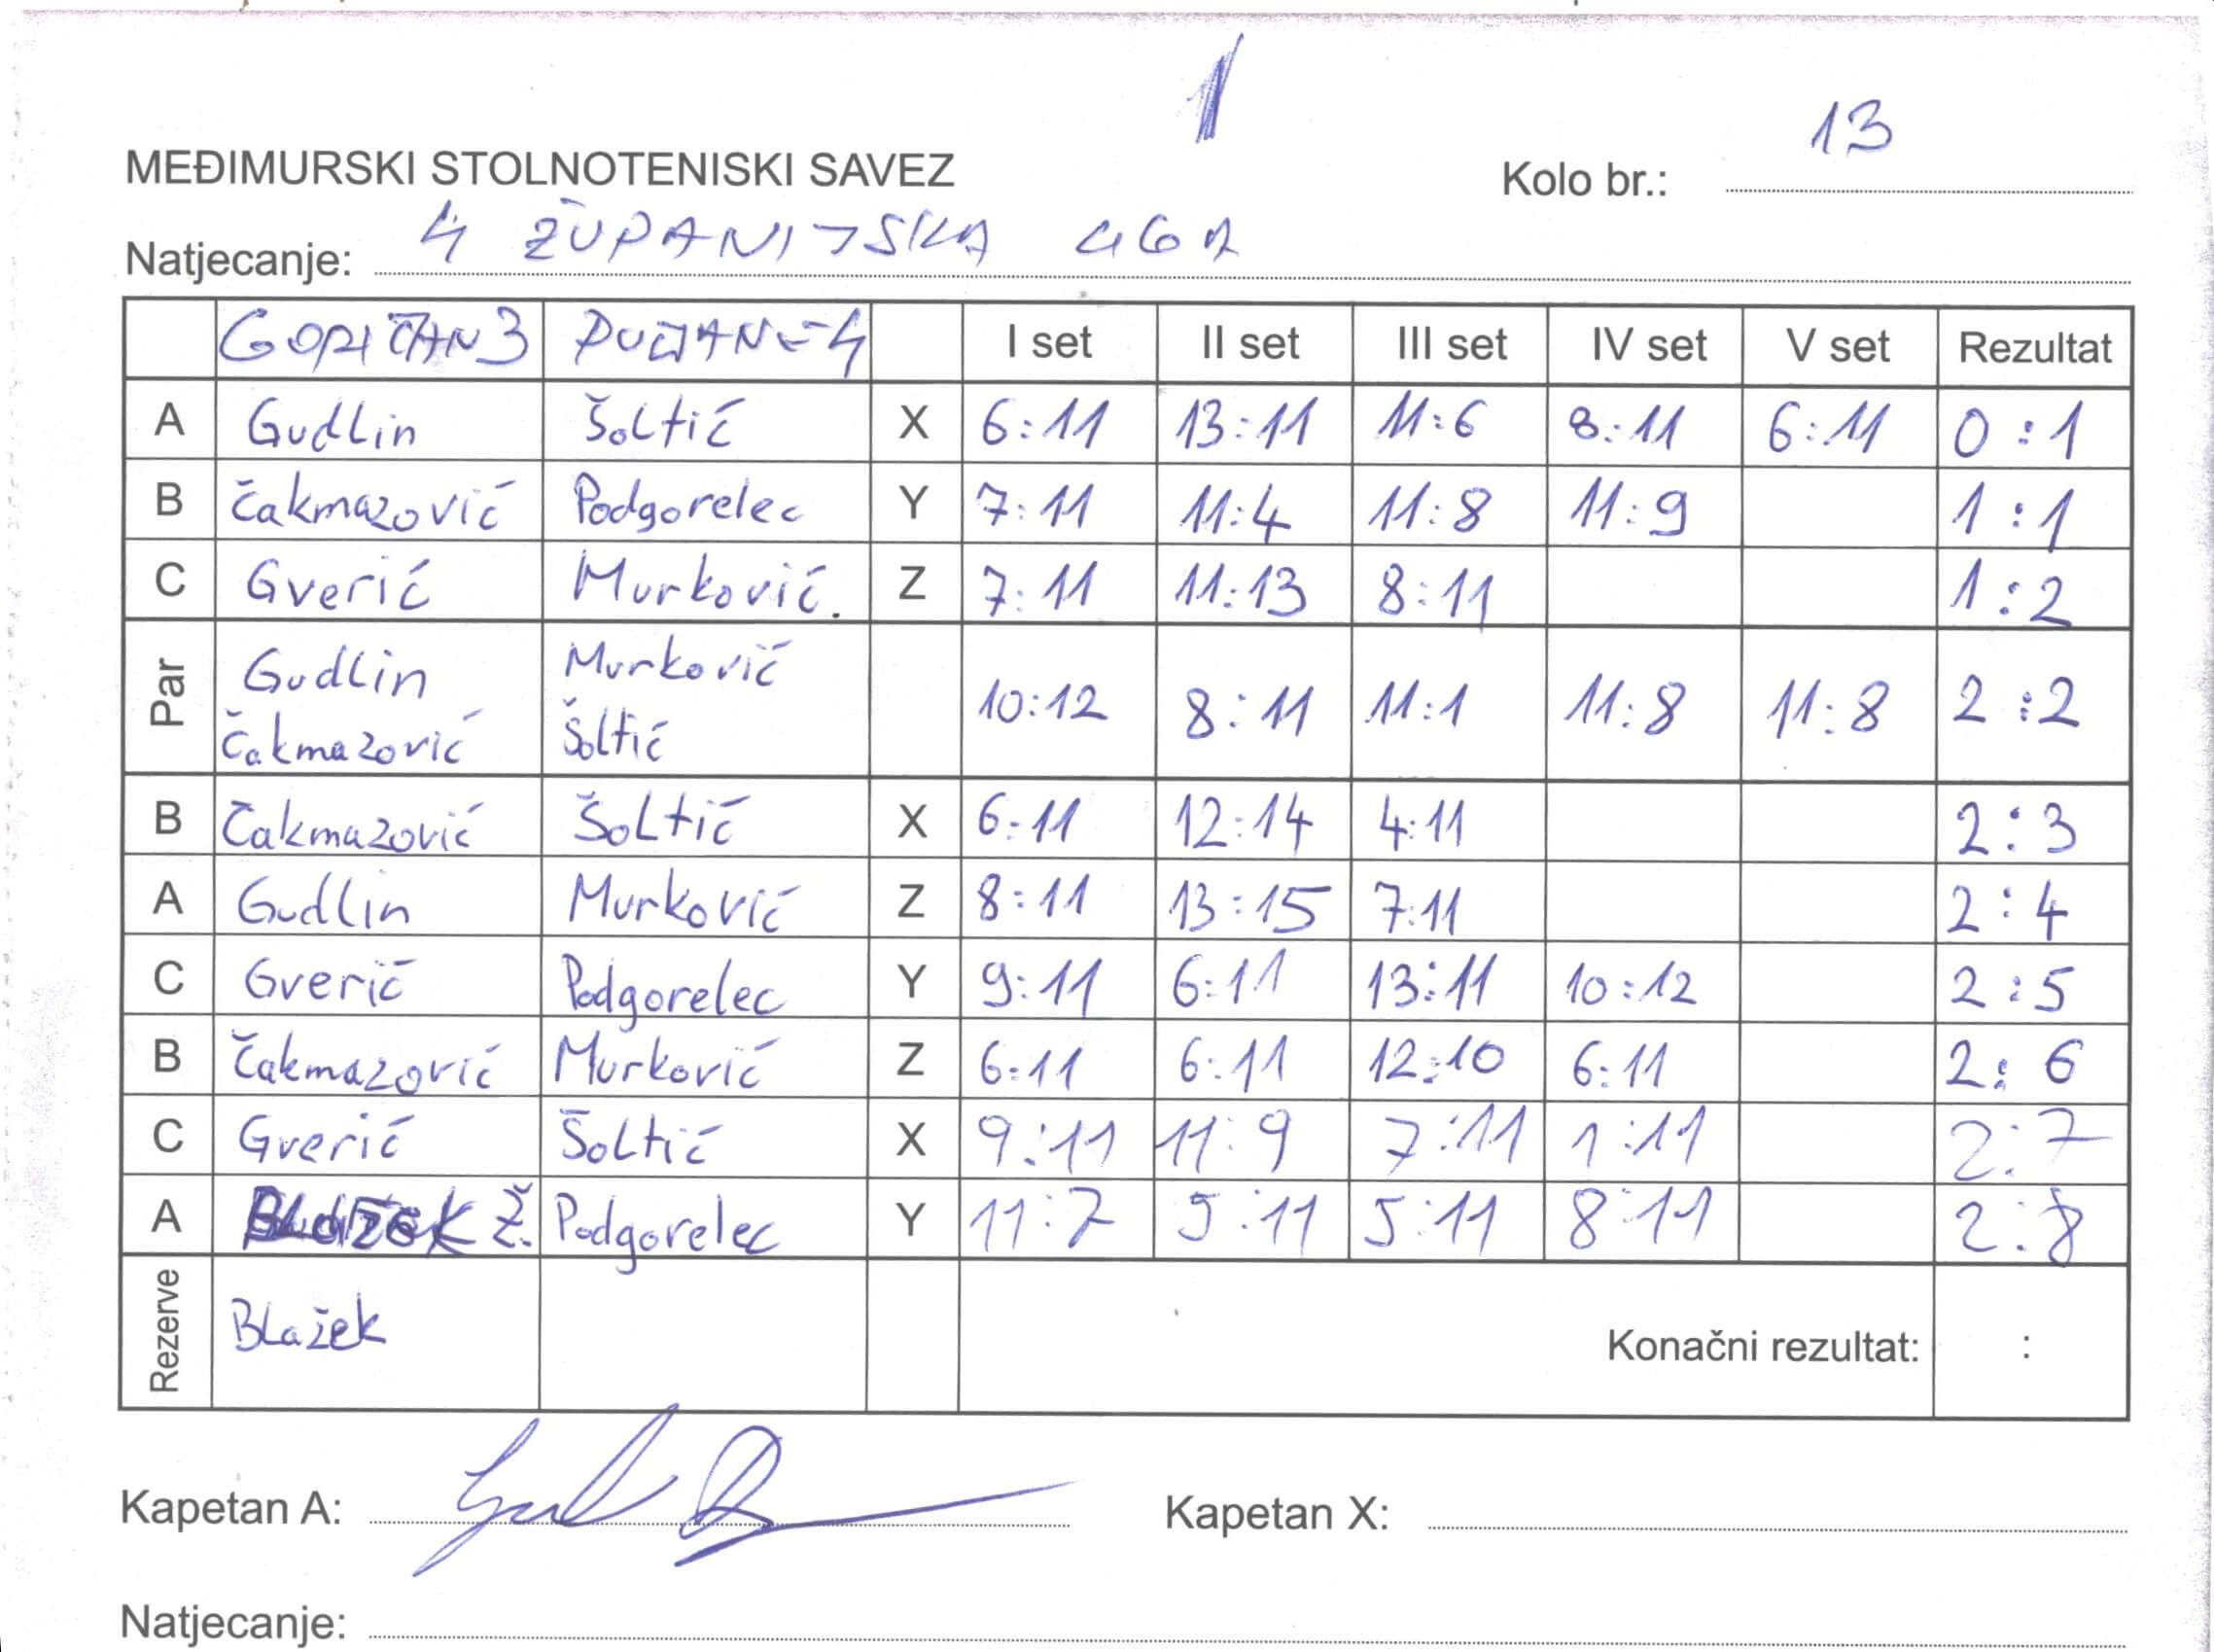 1
MEĐIMURSKI STOLNOTENISKI SAVEZ
Kolo br.: 13
Natjecanje: 4 ŽUPANIJSKA LIGA
GORIČAN 3 I set II set III set IV set V set Rezultat
A Gudlin Šoltić X 6:11 13:11 11:6 8:11 6:11 0:1
B Čakmazović Podgorelec Y 7:11 11:4 11:8 11:9 1:1
C Gverić Murković. Z 7:11 11:13 8:11 1:2
Par Gudlin Murković 10:12 8:11 11:1 11:8 11:8 2:2
Čakmazović Šoltić
B Čakmazović Šoltić X 6:11 12:14 4:11 2:3
A Gudlin Murković Z 8:11 13:15 7:11 2:4
C Gverić Podgorelec Y 9:11 6:11 13:11 10:12 2:5
B Čakmazović Murković Z 6:11 6:11 12:10 6:11 2:6
C Gverić Šoltić X 9:11 11:9 7:11 1:11 2:7
A Blažek Ž. Podgorelec Y 11:7 5:11 5:11 8:11 2:8
Rezerve Blažek Konačni rezultat: :
Kapetan A: Kapetan X:
Natjecanje: